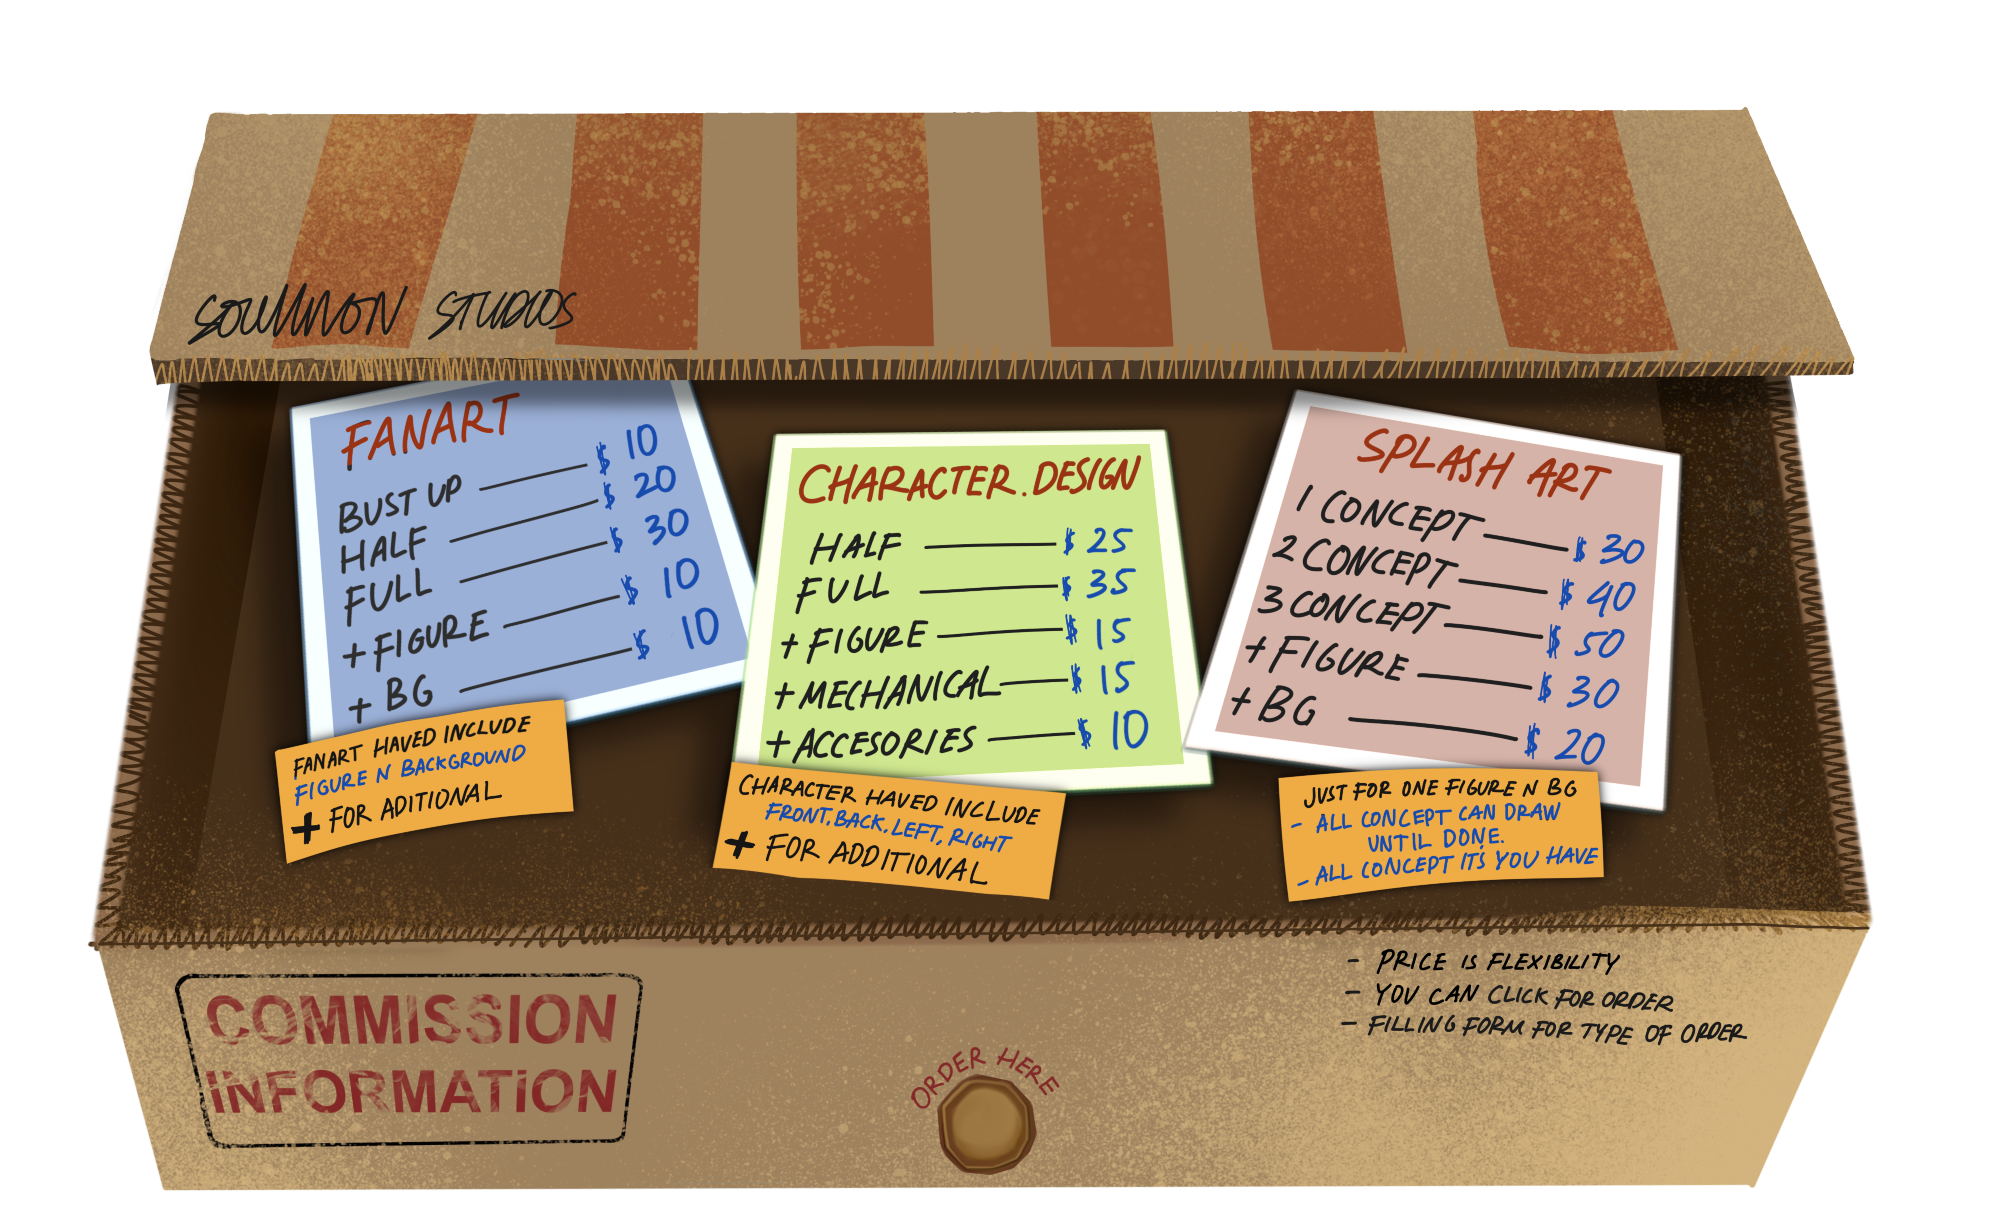 STUDIOS
FANART
BUST UP $ 10
HALF $ 20
FULL $ 30
+ FIGURE $ 10
+ BG $ 10
FANART HAVED INCLUDE
FIGURE N BACKGROUND
+ FOR ADITIONAL
CHARACTER.DESIGN
HALF $ 25
FULL $ 35
+ FIGURE $ 15
+ MECHANICAL $ 15
+ ACCESORIES $ 10
CHARACTER HAVED INCLUDE
FRONT, BACK, LEFT, RIGHT
+ FOR ADDITIONAL
SPLASH ART
1 CONCEPT $ 30
2 CONCEPT $ 40
3 CONCEPT $ 50
+ FIGURE $ 30
+ BG $ 20
JUST FOR ONE FIGURE N BG
- ALL CONCEPT CAN DRAW
UNTIL DONE.
- ALL CONCEPT IT'S YOU HAVE
COMMISSION
INFORMATION
ORDER HERE
- PRICE IS FLEXIBILITY
- YOU CAN CLICK FOR ORDER
- FILLING FORM FOR TYPE OF ORDER